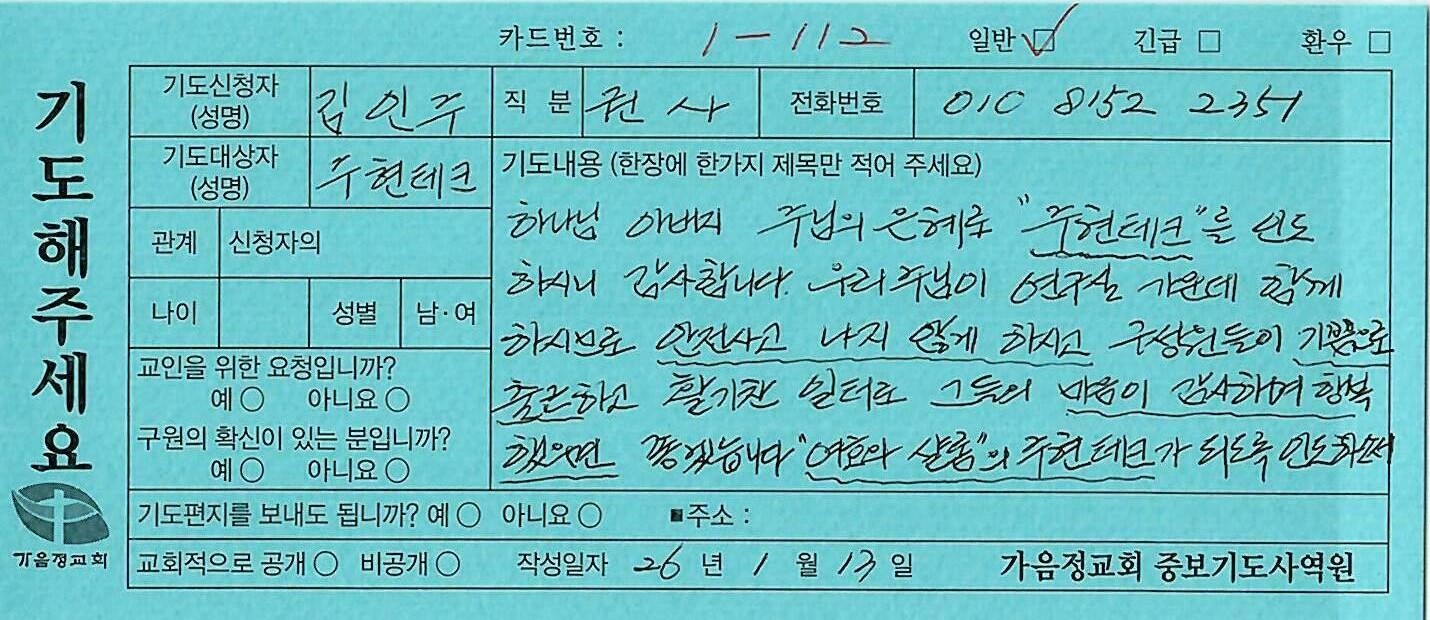 카드번호 : 1-112 일반 ☑ 긴급 □ 환우 □
기도해주세요
기도신청자 (성명) 김인주 직 분 권사 전화번호 010 8152 2351
기도대상자 (성명) 주현테크
기도내용 (한장에 한가지 제목만 적어 주세요)
하나님 아버지 주님의 은혜로 "주현테크"를 인도
하시니 감사합니다. 우리 주님이 연구실 가운데 함께
하시므로 안전사고 나지 않게 하시고 구성원들이 기쁨으로
출근하고 활기찬 일터로 그들의 마음이 감사하며 행복
했으면 좋겠습니다 "여호와 샬롬"의 주현테크가 되도록 인도하소서
관계 신청자의
나이 성별 남·여
교인을 위한 요청입니까?
예 ○ 아니요 ○
구원의 확신이 있는 분입니까?
예 ○ 아니요 ○
기도편지를 보내도 됩니까? 예 ○ 아니요 ○ ■주소 :
가음정교회
교회적으로 공개 ○ 비공개 ○ 작성일자 26 년 1 월 13 일 가음정교회 중보기도사역원